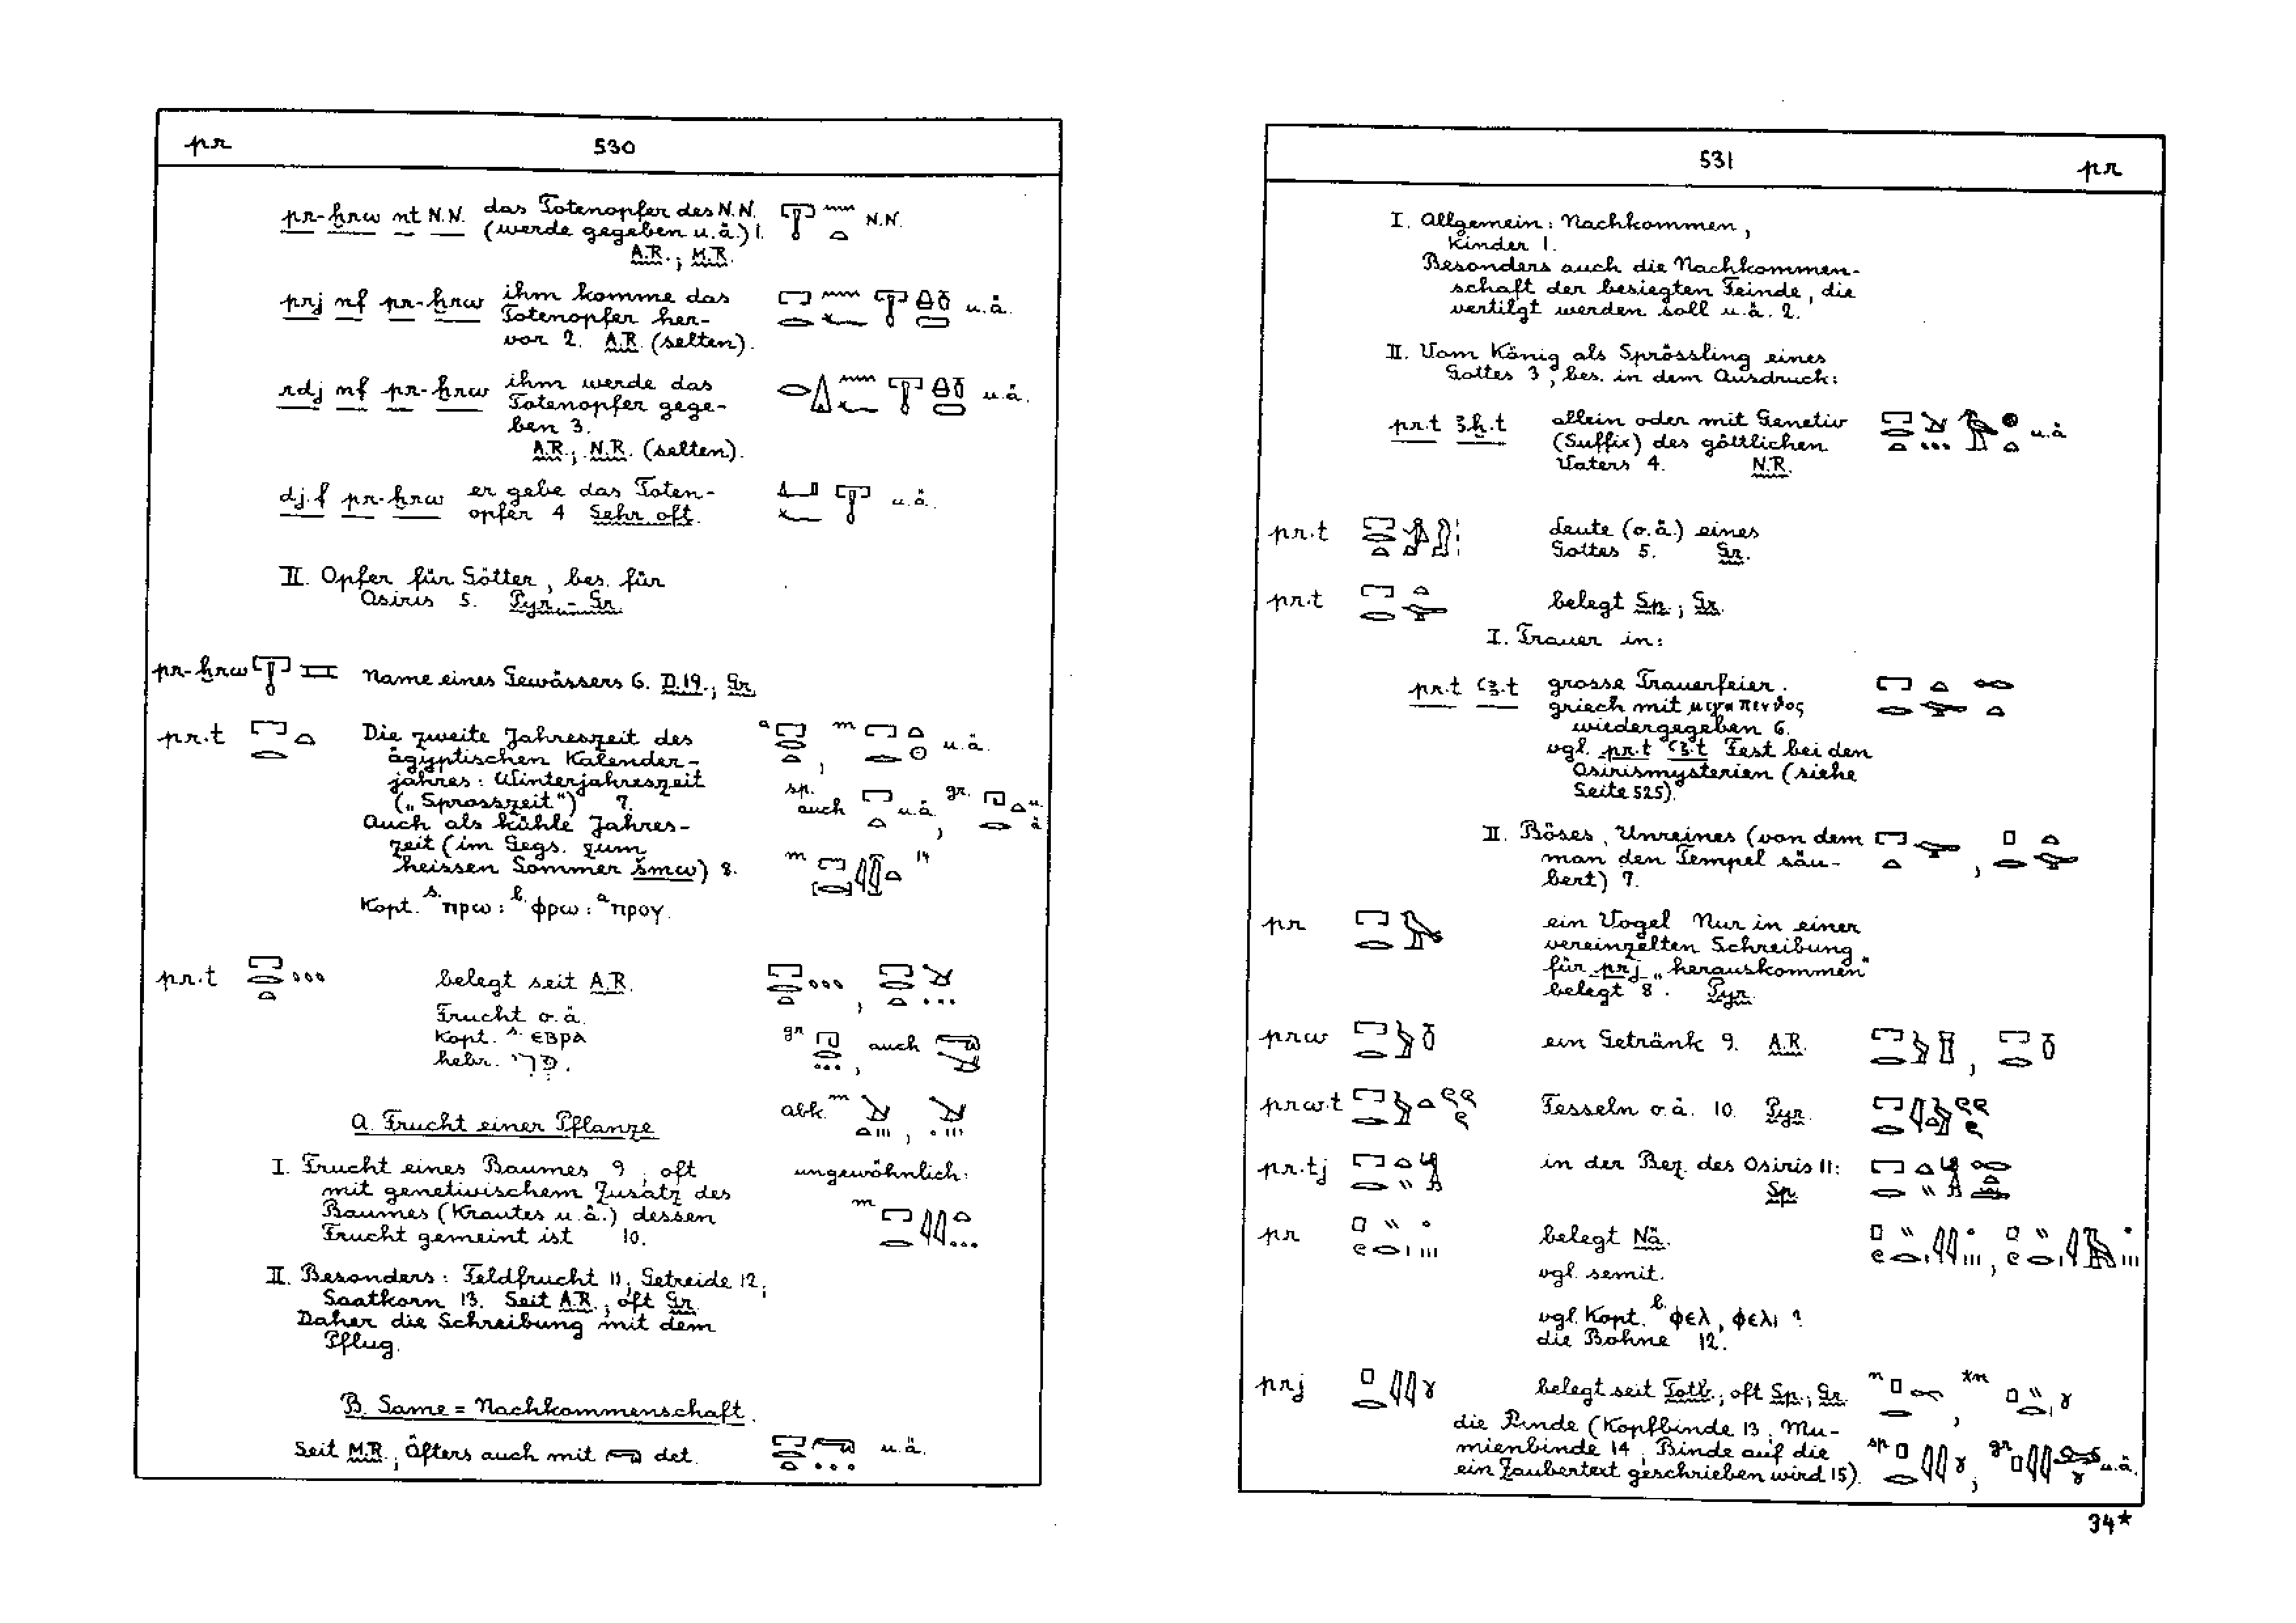 pr 530
pr-ḫrw nt N.N. das Totenopfer des N.N. N.N.
(werde gegeben u.ä.) 1.
A.R.; M.R.
prj nf pr-ḫrw ihm komme das u.ä.
Totenopfer her-
vor 2. A.R. (selten).
rdj nf pr-ḫrw ihm werde das u.ä.
Totenopfer gege-
ben 3.
A.R.; N.R. (selten).
dj.f pr-ḫrw er gebe das Toten- u.ä.
opfer 4 Sehr oft.
II. Opfer für Götter, bes. für
Osiris 5. Pyr. - Gr.
pr-ḫrw Name eines Gewässers 6. D.19.; Gr.
pr.t Die zweite Jahreszeit des a m u.ä.
ägyptischen Kalender-
jahres: Winterjahreszeit
(„Sprosszeit") 7. sp. auch u.ä., gr. u.ä.
Auch als kühle Jahres-
zeit (im Gegs. zum
heissen Sommer šmw) 8. m 14
Kopt. s. ⲡⲣⲱ: b. ⲫⲣⲱ: a ⲡⲣⲟⲩ.
pr.t belegt seit A.R.
Frucht o.ä.
Kopt. s. ⲉⲃⲣⲁ gr auch
hebr. פְּרִי.
abk. m
A. Frucht einer Pflanze
I. Frucht eines Baumes 9, oft ungewöhnlich:
mit genetivischem Zusatz des m
Baumes (Krautes u.ä.) dessen
Frucht gemeint ist 10.
II. Besonders: Feldfrucht 11; Getreide 12;
Saatkorn 13. Seit A.R.; oft Gr.
Daher die Schreibung mit dem
Pflug.
B. Same = Nachkommenschaft.
Seit M.R.; Öfters auch mit det. u.ä.
531 pr
I. Allgemein: Nachkommen,
Kinder 1.
Besonders auch die Nachkommen-
schaft der besiegten Feinde, die
vertilgt werden soll u.ä. 2.
II. Vom König als Sprössling eines
Gottes 3, bes. in dem Ausdruck:
pr.t ꜣḫ.t allein oder mit Genetiv u.ä
(Suffix) des göttlichen
Vaters 4. N.R.
pr.t Leute (o.ä.) eines
Gottes 5. Gr.
pr.t belegt Sp.; Gr.
I. Trauer in:
pr.t ꜥꜣ.t grosse Trauerfeier.
griech mit μεγα πενθος
wiedergegeben 6.
vgl. pr.t ꜥꜣ.t Fest bei den
Osirismysterien (siehe
Seite 525).
II. Böses, Unreines (von dem
man den Tempel säu-
bert) 7.
pr ein Vogel Nur in einer
vereinzelten Schreibung
für prj „herauskommen"
belegt 8. Pyr.
prw ein Getränk 9. A.R.
prw.t Fesseln o.ä. 10. Pyr.
pr.tj in der Bez. des Osiris 11:
Sp
pr belegt Nä.
vgl. semit.
vgl. Kopt. b. ⲫⲉⲗ, ⲫⲉⲗⲓ ?
die Bohne 12.
prj belegt seit Totb.; oft Sp.; Gr.
die Binde (Kopfbinde 13; Mu-
mienbinde 14; Binde auf die sp gr u.ä.
ein Zaubertext geschrieben wird 15).
34*